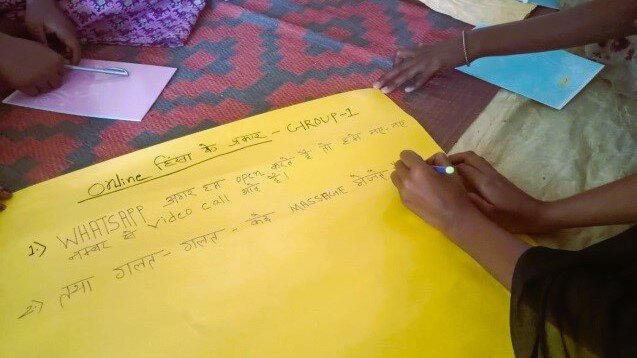 Online हिंसा के प्रकार - GROUP-1
1.) WHATSAPP अगर हम open करते है तो हमे नए-नए
नम्बर से video call आते है।
2.) तथा गलत-गलत - कई MASSAGE भेजते